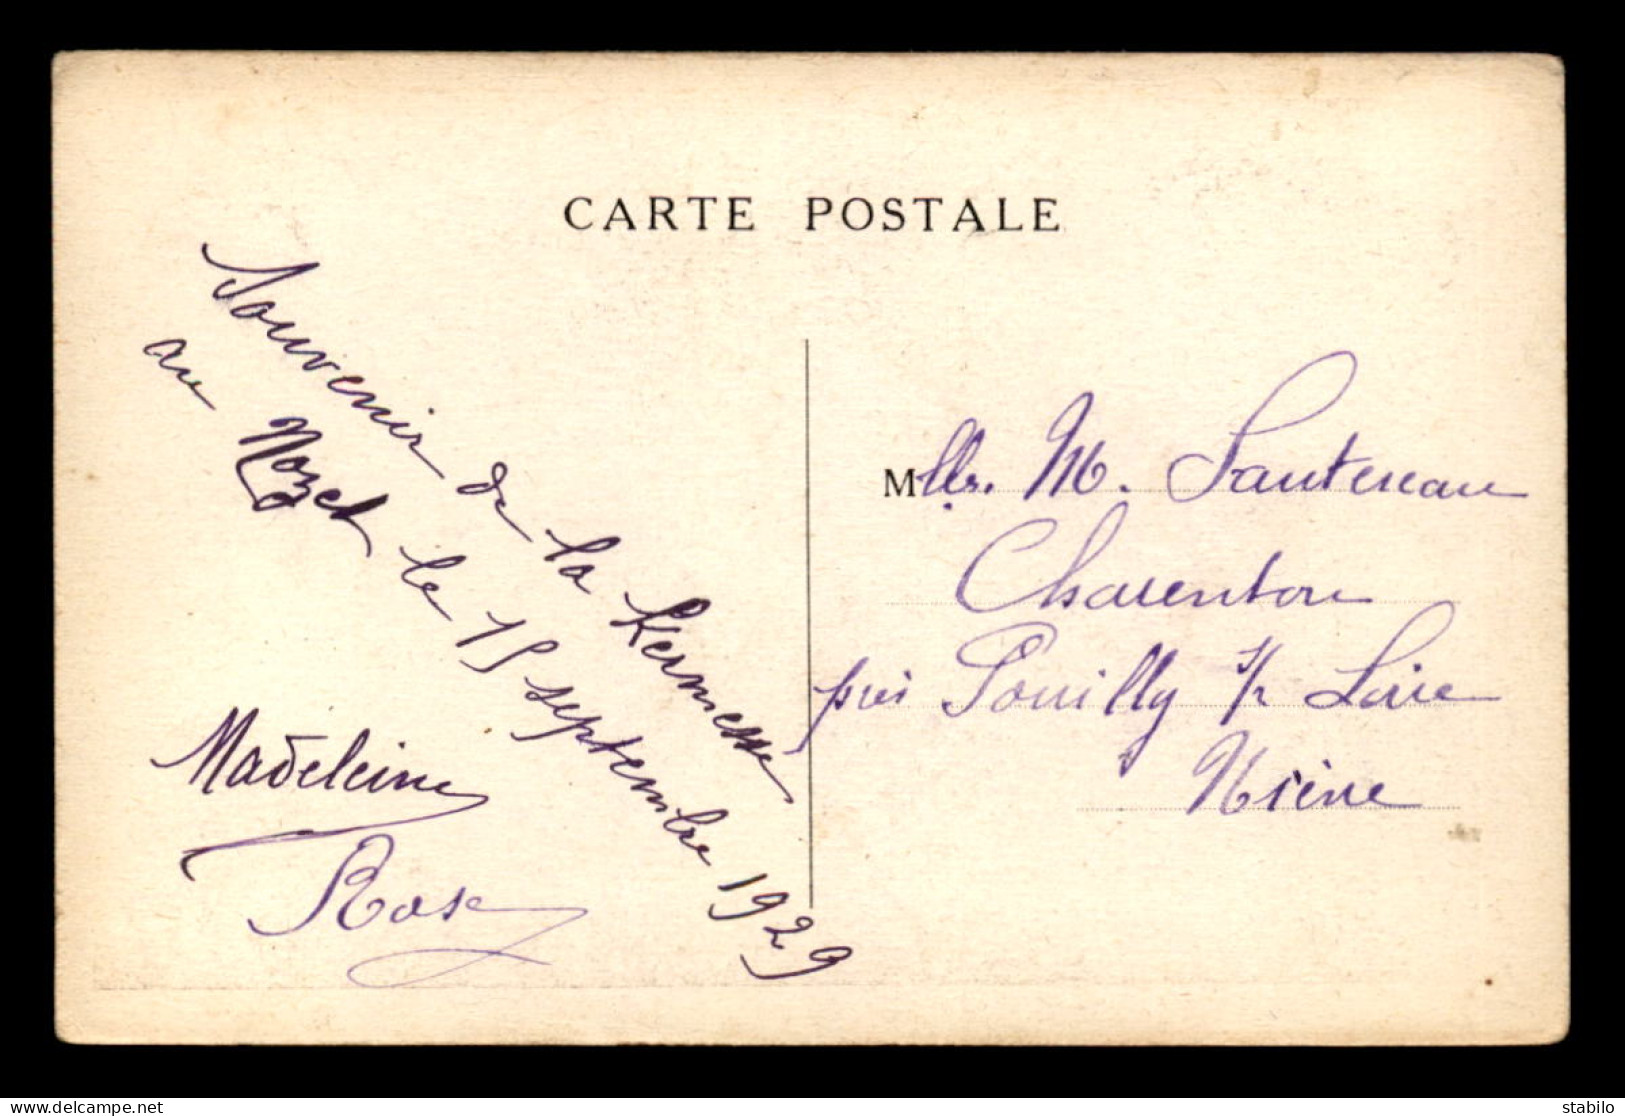 CARTE POSTALE
Souvenir de la Kermesse
au Nozet le 15 septembre 1929
Madeleine
Rose
Mlle. M. Sautereau
Charenton
près Pouilly s/ Loire
Nièvre
delcampe.net
stabilo